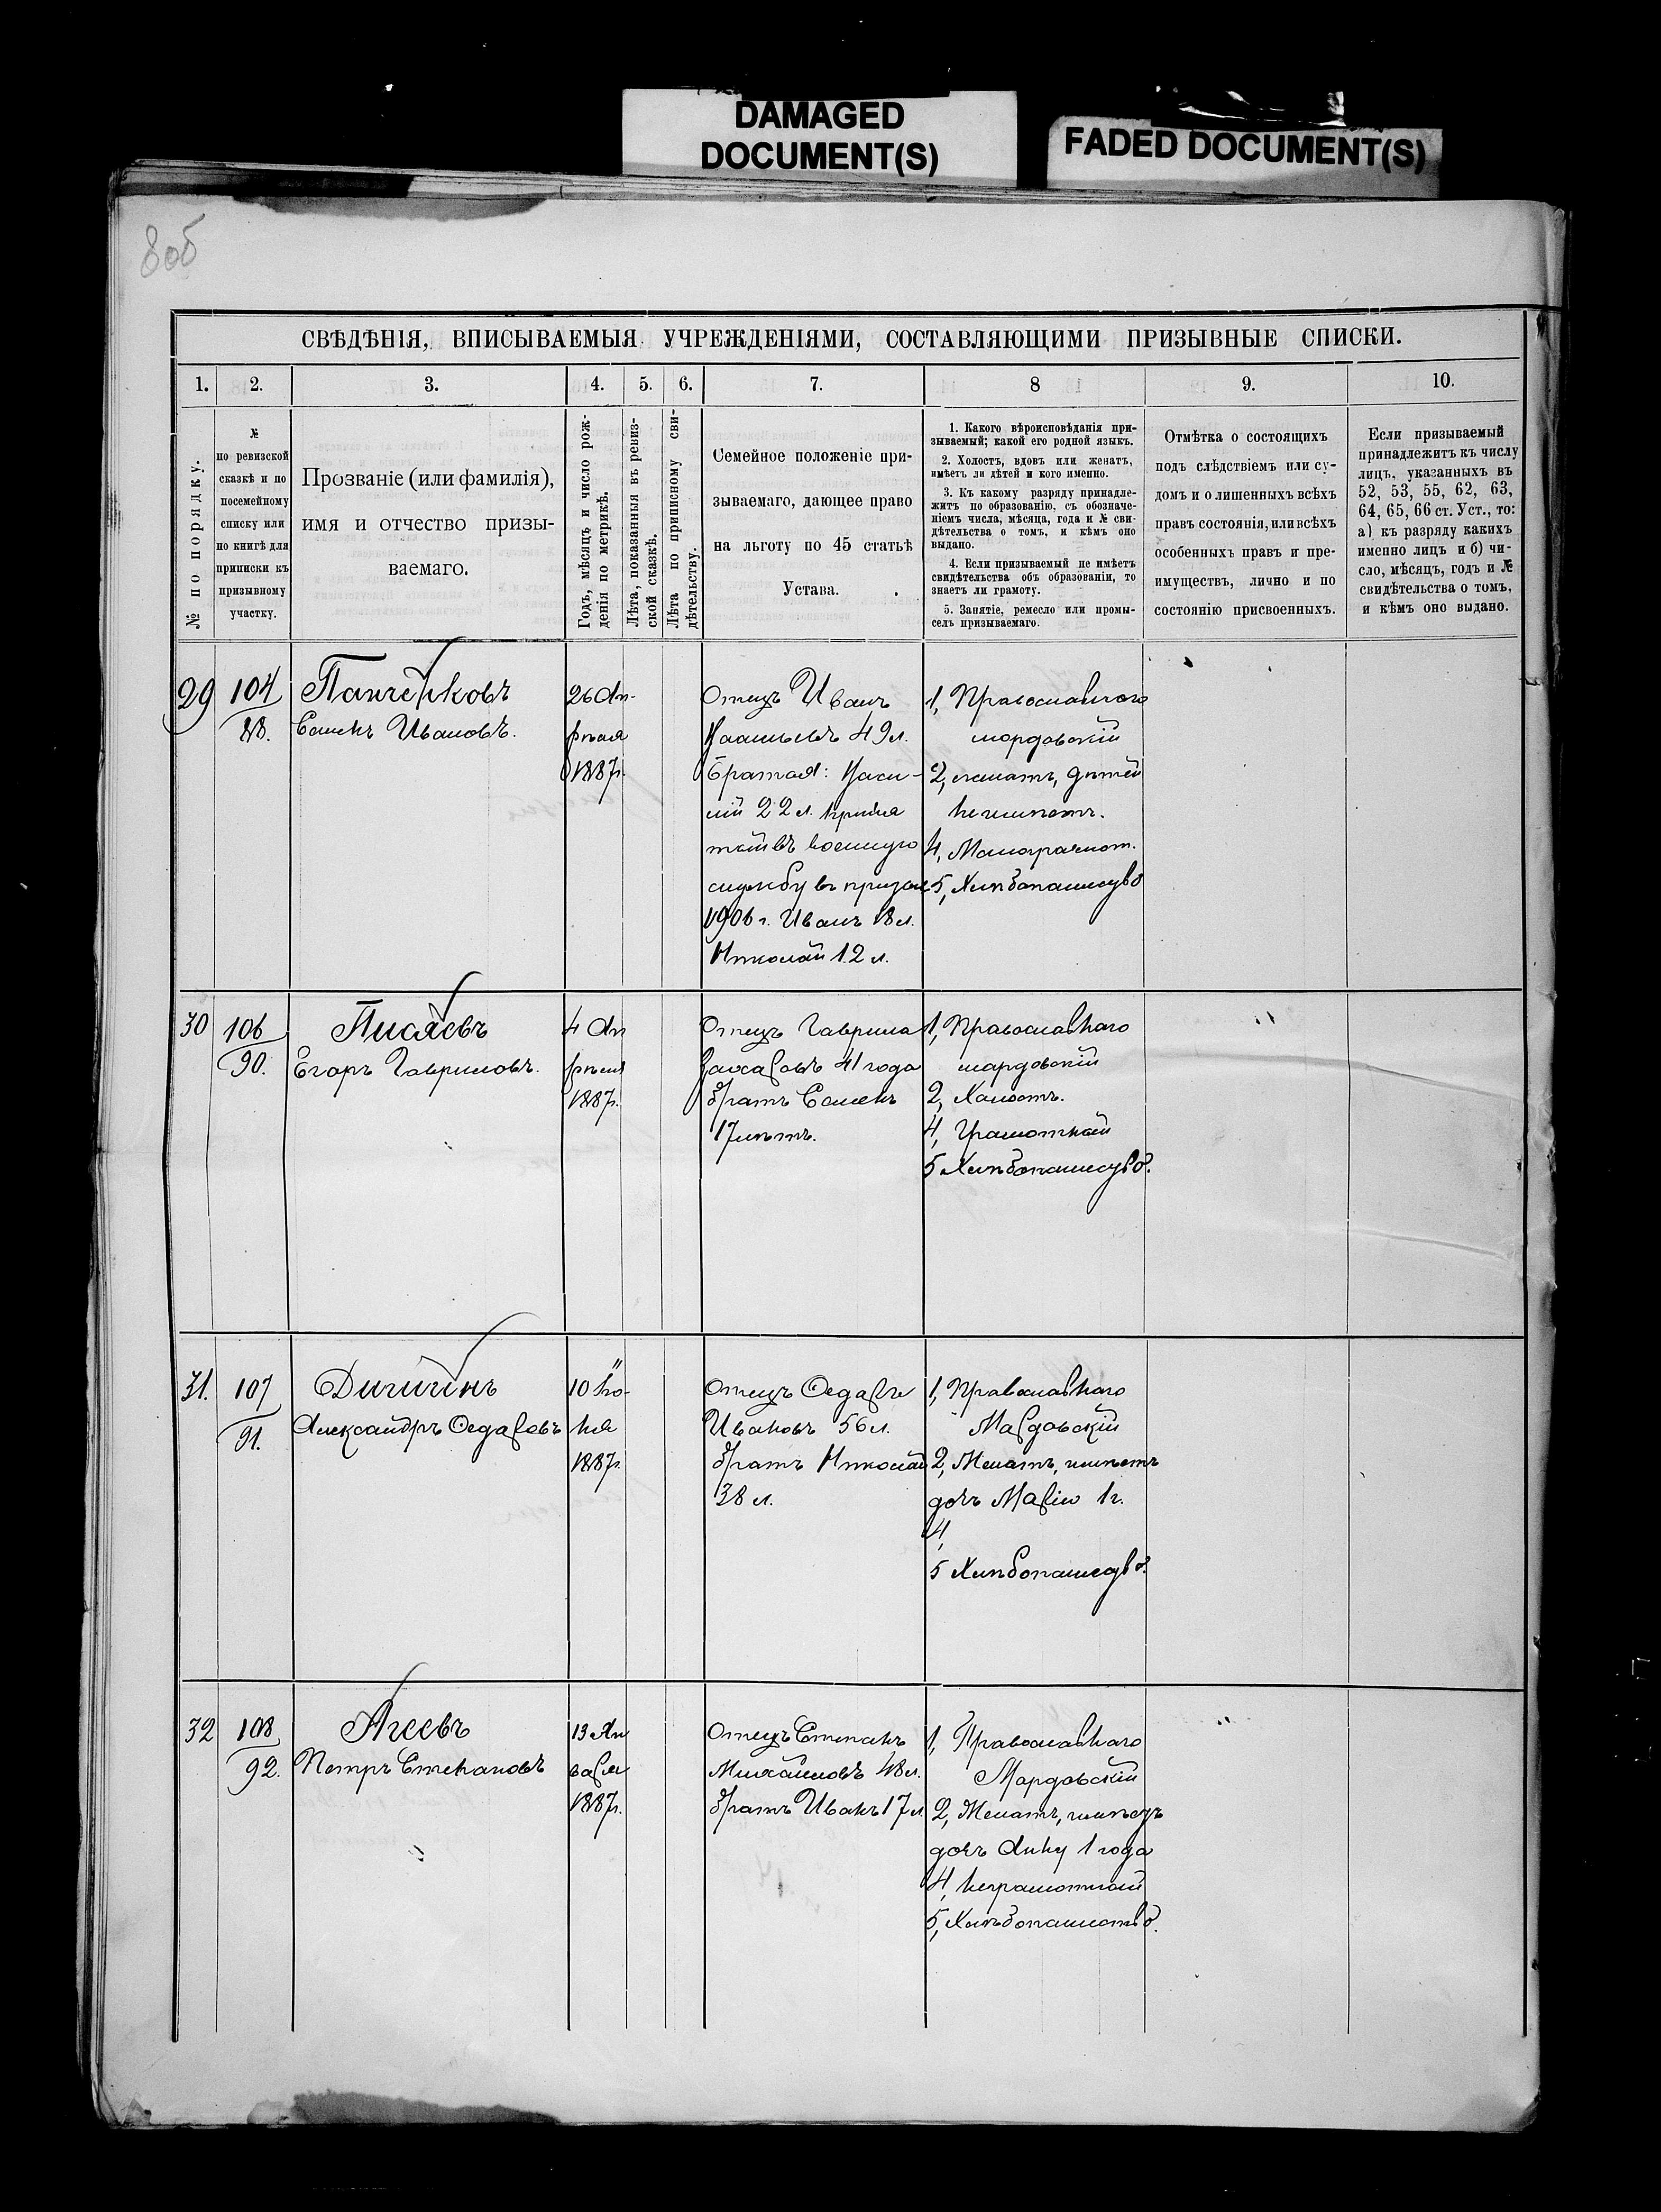 DAMAGED
DOCUMENT(S)
FADED DOCUMENT(S)
80б
СВѢДѢНІЯ, ВПИСЫВАЕМЫЯ УЧРЕЖДЕНІЯМИ, СОСТАВЛЯЮЩИМИ ПРИЗЫВНЫЕ СПИСКИ.
1. 2. 3. 4. 5. 6. 7. 8 9. 10.
№ по порядку.
№
по ревизской
сказкѣ и по
посемейному
списку или
по книгѣ для
приписки къ
призывному
участку.
Прозваніе (или фамилія),
имя и отчество призы-
ваемаго.
Годъ, мѣсяцъ и число рож-
денія по метрикѣ.
Лѣта, показанныя въ ревиз-
ской сказкѣ.
Лѣта по приписному сви-
дѣтельству.
Семейное положеніе при-
зываемаго, дающее право
на льготу по 45 статьѣ
Устава.
1. Какого вѣроисповѣданія при-
зываемый; какой его родной языкъ.
2. Холостъ, вдовъ или женатъ,
имѣетъ ли дѣтей и кого именно.
3. Къ какому разряду принадле-
житъ по образованію, съ обозначе-
ніемъ числа, мѣсяца, года и № сви-
дѣтельства о томъ, и кѣмъ оно
выдано.
4. Если призываемый не имѣетъ
свидѣтельства объ образованіи, то
знаетъ ли грамоту.
5. Занятіе, ремесло или промы-
селъ призываемаго.
Отмѣтка о состоящихъ
подъ слѣдствіемъ или су-
домъ и о лишенныхъ всѣхъ
правъ состоянія, или всѣхъ
особенныхъ правъ и пре-
имуществъ, лично и по
состоянію присвоенныхъ.
Если призываемый
принадлежитъ къ числу
лицъ, указанныхъ въ
52, 53, 55, 62, 63,
64, 65, 66 ст. Уст., то:
а) къ разряду какихъ
именно лицъ и б) чи-
сло, мѣсяцъ, годъ и №
свидѣтельства о томъ,
и кѣмъ оно выдано.
29
104
88.
Семенъ Ивановъ.
26 Ап-
рѣля
1887г.
Отецъ Иванъ
49 л.
Братья: Васи-
лій 22 л. приня
тый въ военную
службу въ призыв
1906 г. Иванъ 18 л.
Николай 12 л.
1, Православного
мордовскій
2, женатъ, дѣтей
неимѣетъ.
4, Малограмот.
5, Хлѣбопашество
30
106
90.
Писяевъ
Егоръ Гавриловъ.
4 Ап
рѣля
1887г.
Отецъ Гаврила
Захаровъ 41 года
братъ Семенъ
17 лѣтъ.
1, Православнаго
мордовскій
2, Холостъ.
4, Грамотный
5 Хлѣбопашество.
31.
107
91.
Дигигинъ
Александръ Федоровъ
10 Ію-
ня
1887г.
Отецъ Федоръ
Ивановъ 56 л.
братъ Николай
38 л.
1, Православнаго
Мордовскій
2, Женатъ, имѣетъ
дочь Марію 1 г.
4,
5 Хлѣбопашество.
32
108
92.
Агеевъ
Петръ Степановъ
13 Ян
варя
1887г.
Отецъ Степанъ
Михайловъ 48 л.
братъ Иванъ 17 л.
1, Православнаго
Мордовскій
2, Женатъ, имѣетъ
дочь Анну 1 года
4, неграмотный
5, Хлѣбопашество.